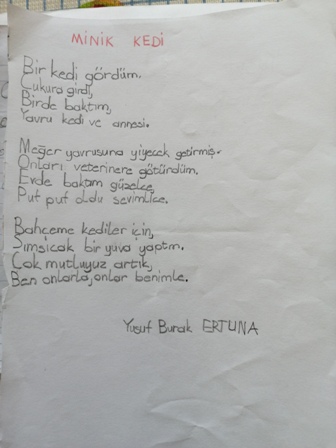 MİNİK KEDİ
Bir kedi gördüm.
Çukura girdi,
Birde baktım,
Yavru kedi ve annesi.
Meğer yavrusuna yiyecek getirmiş.
Onları veterinere götürdüm.
Evde baktım güzelce,
Put put oldu sevimlice.
Bahçeme kediler için,
Sımsıcak bir yuva yaptım.
Çok mutluyuz artık,
Ben onlarla,onlar benimle.
Yusuf Burak ERTUNA